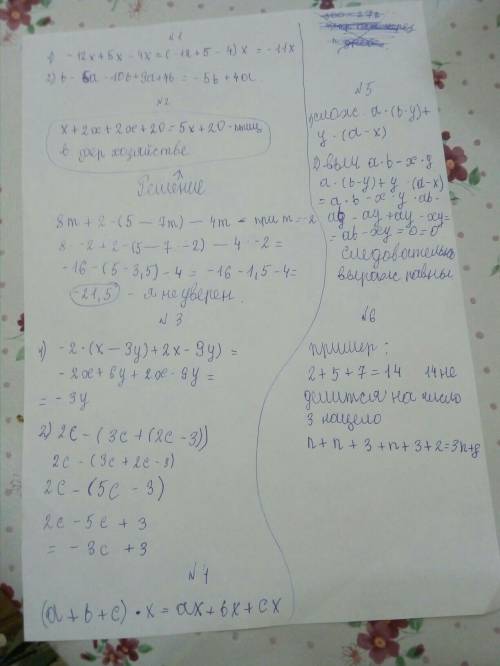 №1
1) -12x+5x-4x=(-12+5-4)x = -11x
2) b-5a-10b+9a+4b = -5b+4a.
№2
x+2x+2x+20=5x+20-птиц
в хозяйстве
Решение
8m+2-(5-7m)-4m = при m=-2
8·-2+2-(5-7·-2)-4·-2=
-16-(5-3,5)-4=-16-1,5-4=
-21,5 - я не уверен.
№3
1) -2·(x-3y)+2x-9y)=
-2x+6y+2x-9y=
=-3y
2) 2c-(3c+(2c-3))
2c-(3c+2c-3)
2c-(5c-3)
2c-5c+3
=-3c+3
№4
(a+b+c)·x=ax+bx+cx
№5
a·(b-y)+
y·(a-x)
2) a·b-x·y
a·(b-y)+y·(a-x)
=a·b-x·y ab-
ay-ay+ay-xy=
=ab-xy=0=0
следовательно
выраж равны
№6
пример:
2+5+7=14 14 не
делится на число
3 нацело
n+n+3+n+3+2=3n+8